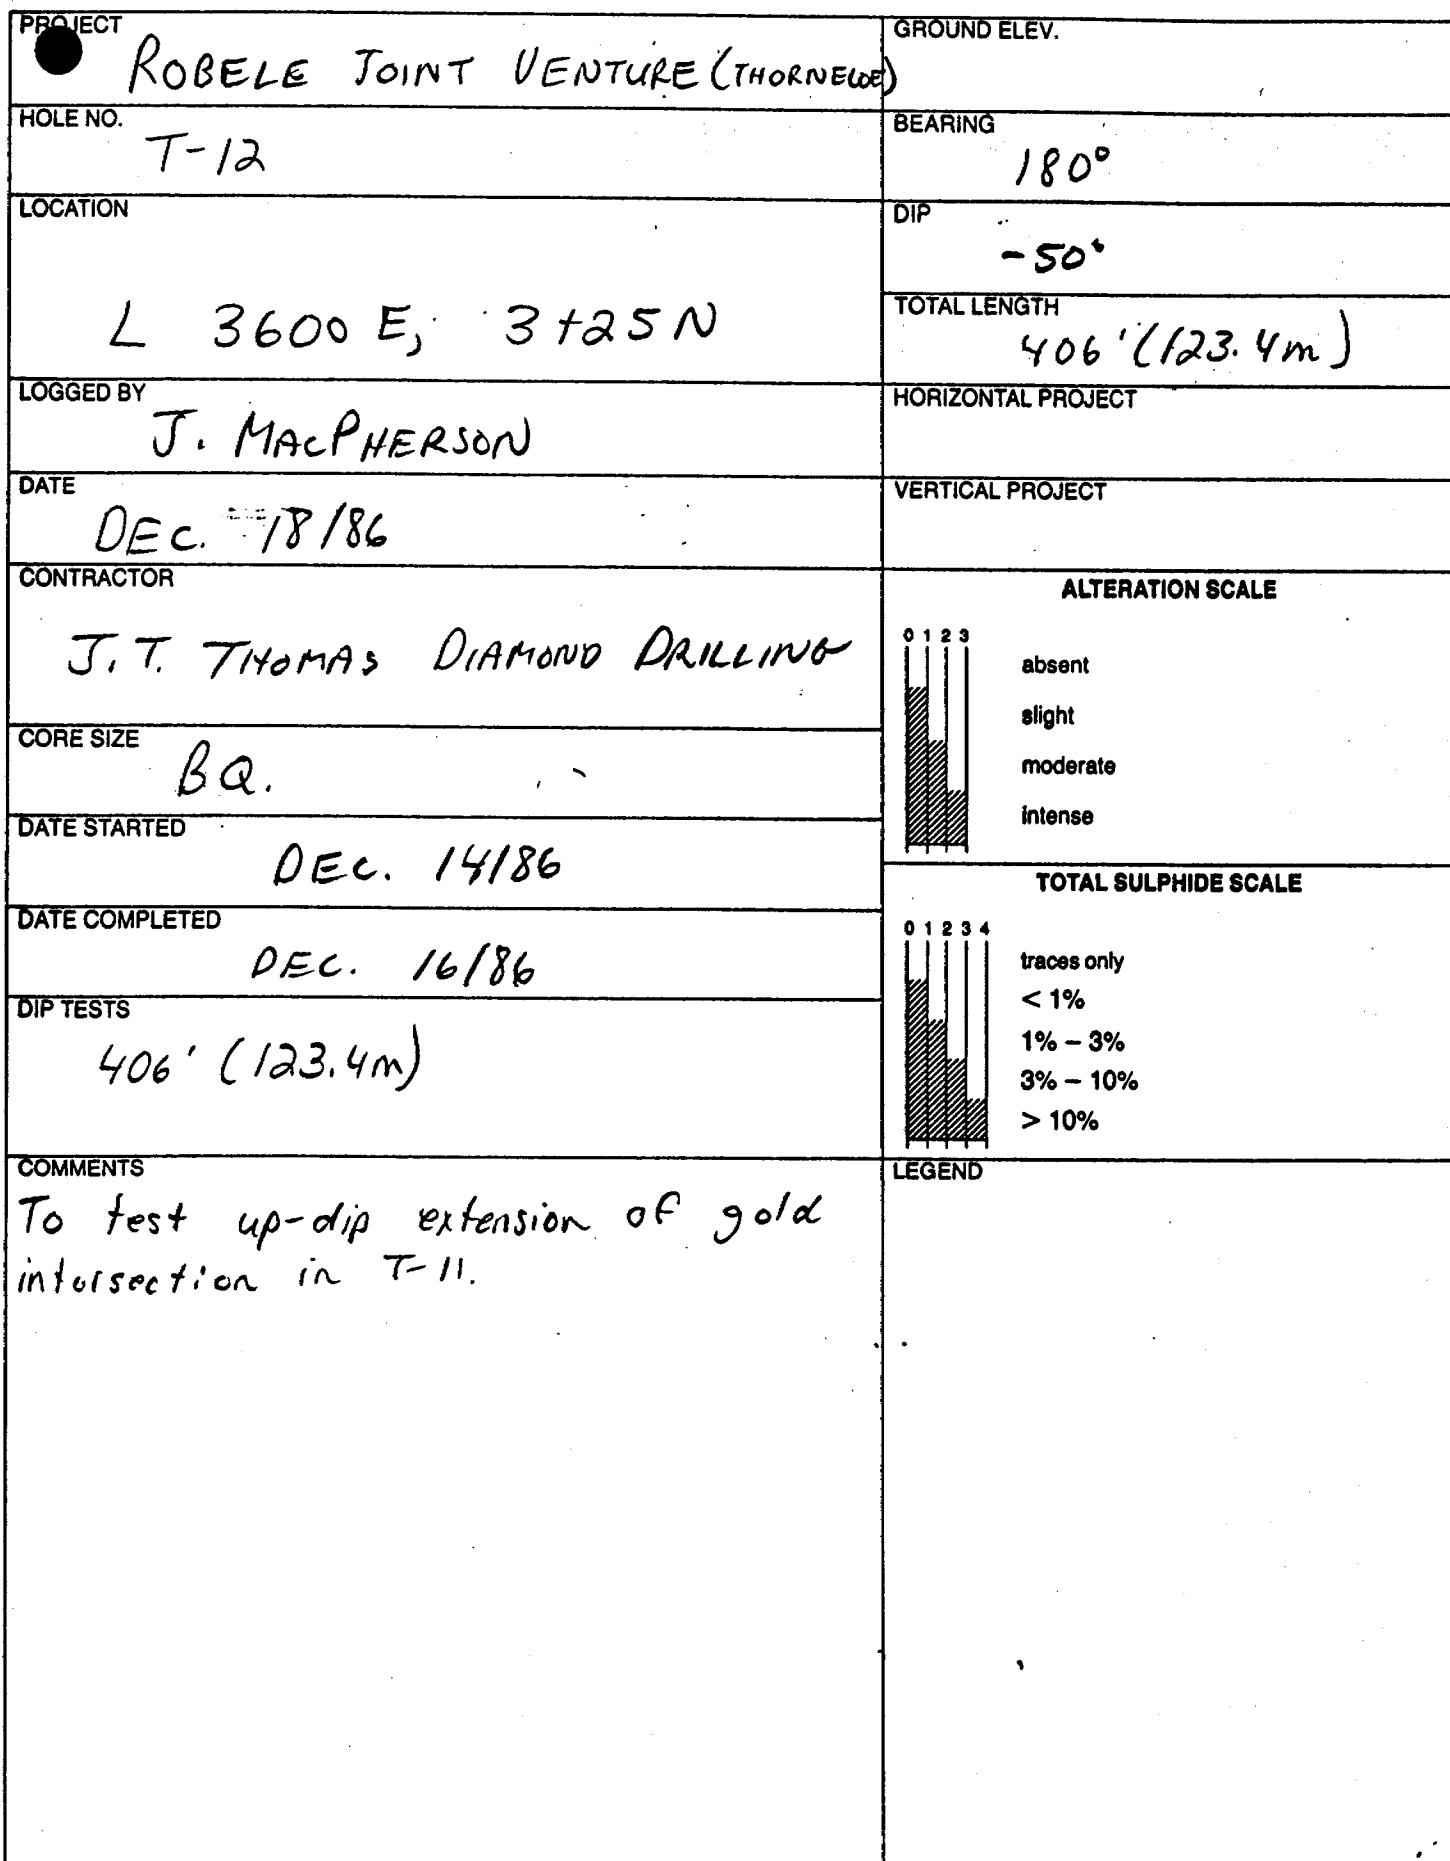 PROJECT
ROBELE JOINT VENTURE (THORNELOE)
HOLE NO.
T-12
LOCATION
L 3600 E; 3+25 N
LOGGED BY
J. MACPHERSON
DATE
DEC. 18/86
CONTRACTOR
J.T. THOMAS DIAMOND DRILLING
CORE SIZE
BQ.
DATE STARTED
DEC. 14/86
DATE COMPLETED
DEC. 16/86
DIP TESTS
406' (123.4m)
COMMENTS
To test up-dip extension of gold
intersection in T-11.
GROUND ELEV.
BEARING
180°
DIP
-50°
TOTAL LENGTH
406' (123.4m)
HORIZONTAL PROJECT
VERTICAL PROJECT
ALTERATION SCALE
0 1 2 3
absent
slight
moderate
intense
TOTAL SULPHIDE SCALE
0 1 2 3 4
traces only
< 1%
1% – 3%
3% – 10%
> 10%
LEGEND